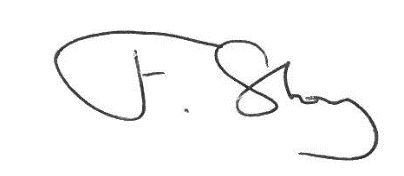 F. Shay